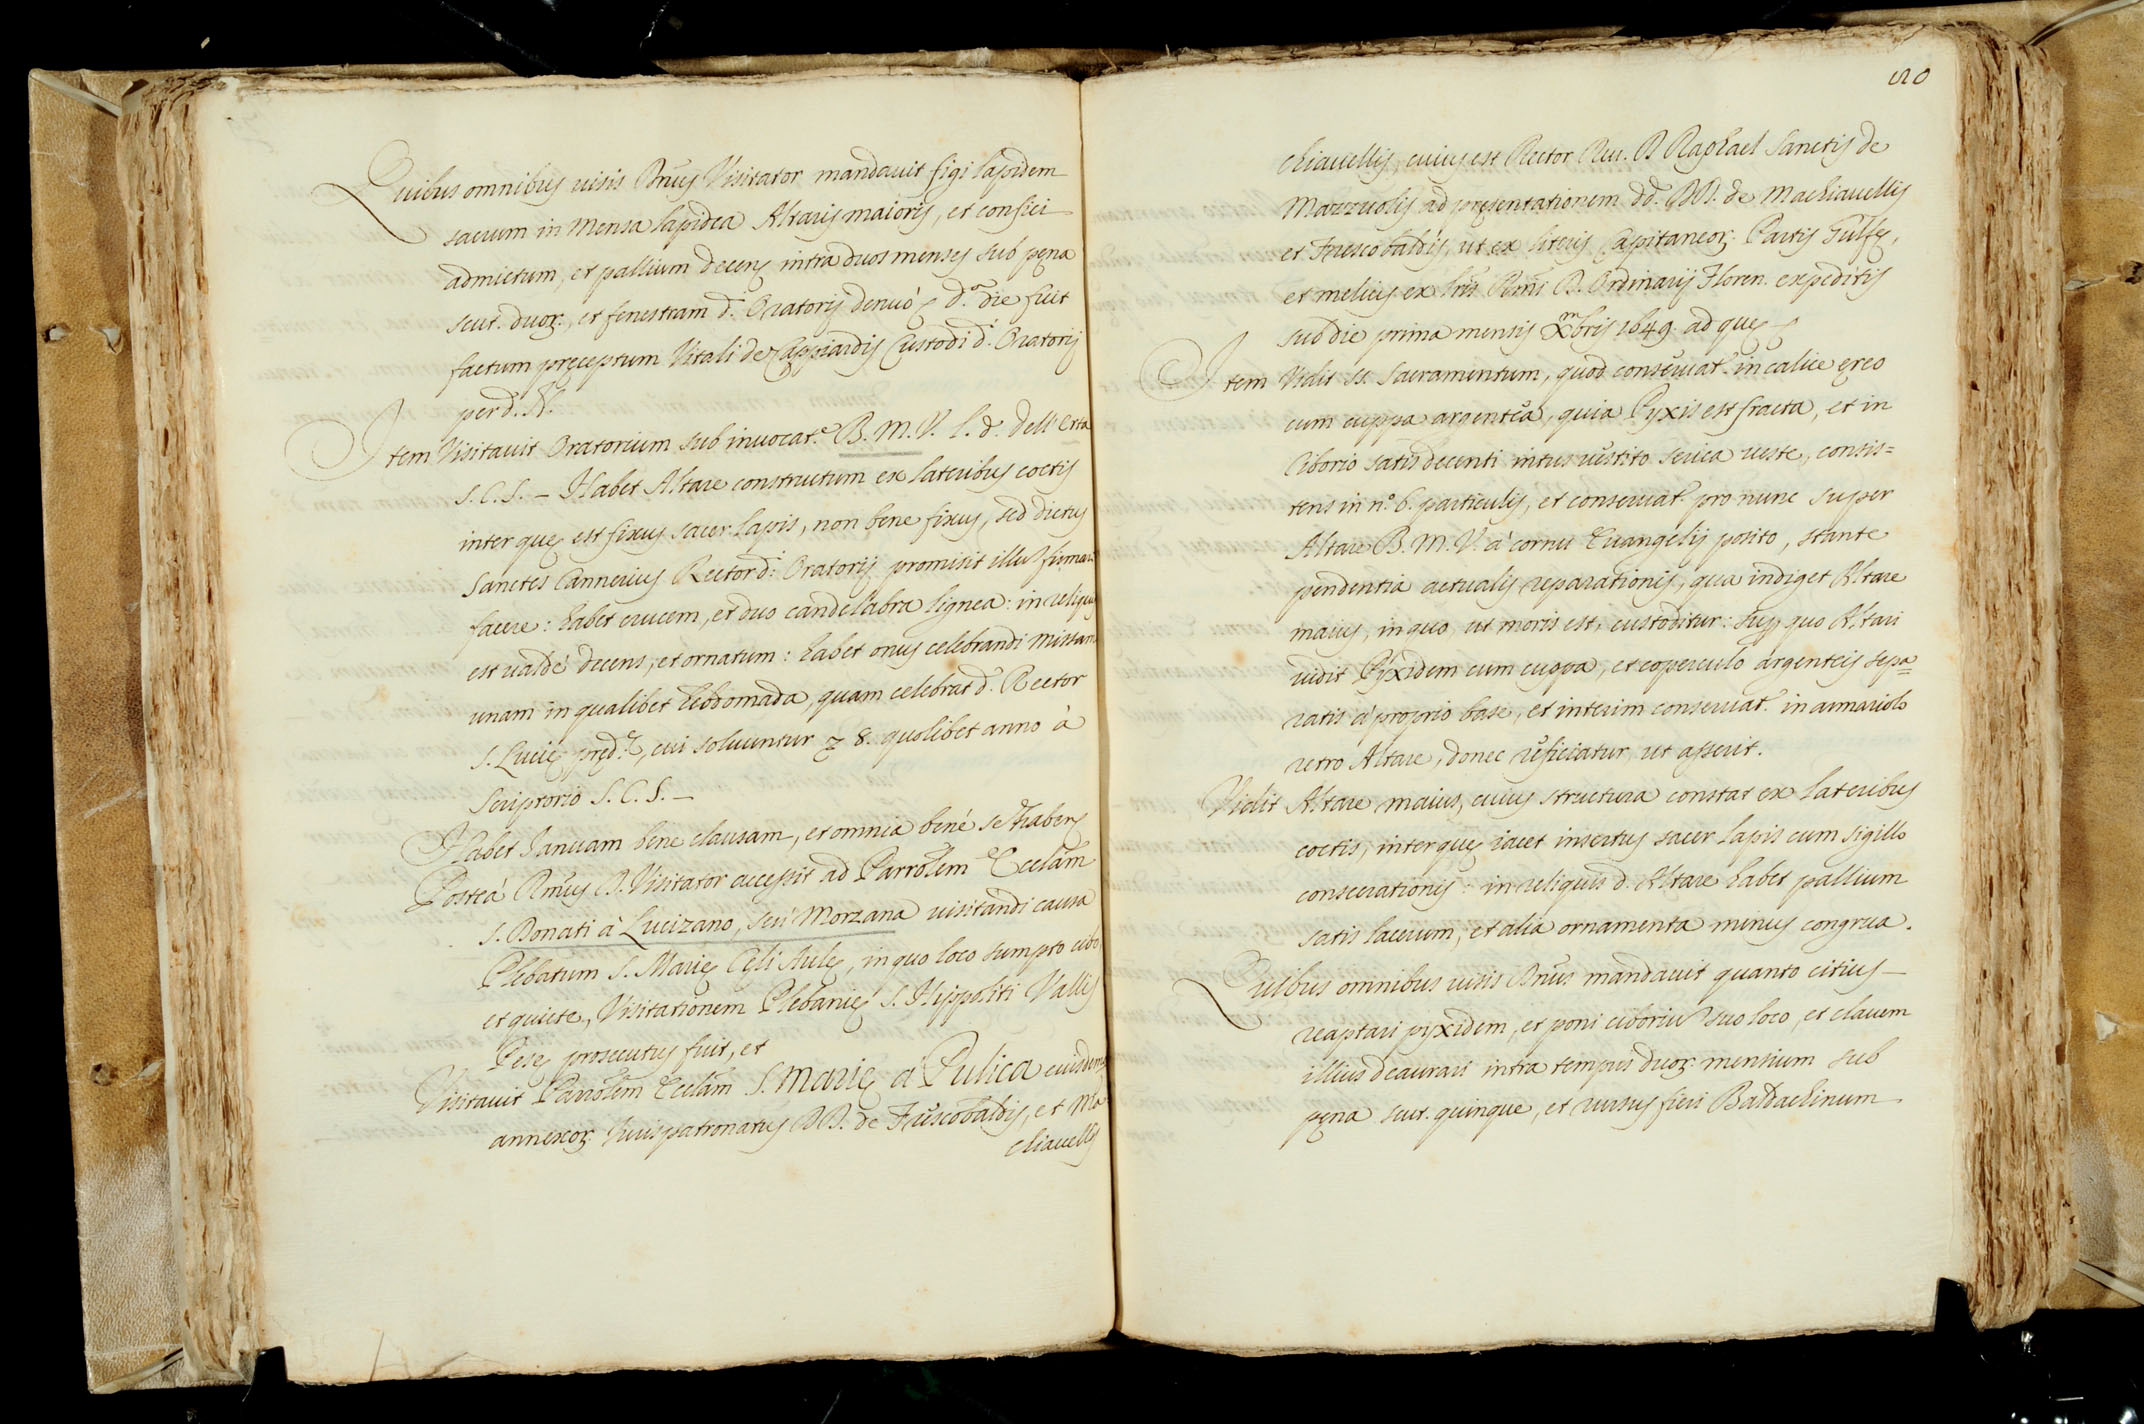 Quibus omnibus visis Rm̃us Visitator mandauit figi lapidem
sacrum in Mensa lapidea Altaris maioris, et confici
admictum, et pallium decens intra duos menses sub pęna
scut. duoꝝ, et fenestram d. Oratorij denuò d.ª die fuit
factum pręceptum Vitali de Cappiardis Custodi d.ⁱ Oratorij
per d. N.
Item Visitauit Oratorium sub inuocat.ᵉ B. M. V. l. d. dell'Erta
S. C. S. – Habet Altare constructum ex lateribus coctis
inter quę est fixus sacer lapis, non bene fixus, sed dictus
Sanctes Cannerius Rector d.ⁱ Oratorij promisit illũ firmari
facere: habet crucem, et duo candelabra lignea: in reliquis
est valdè decens, et ornatum: habet onus celebrandi missam
unam in qualibet hebdomada, quam celebrat d. Rector
S. Lucię pręd.ᵉ, cui soluuntur 8. quolibet anno à
Scriptorio S. C. S. –
Habet Ianuam bene clausam, et omnia benè se habens
Posteà Rm̃us D. Visitator accessit ad Parrõlem Ecclam̃
S. Donati à Lucizano, seù Morzana visitandi causa
Plebatum S. Marię Cęli Aulę, in quo loco sumpto cibo
et quiete, Visitationem Plebanię S. Hippoliti Vallis
Pesę prosecutus fuit, et
Visitauit Parrõlem Ecclam̃ S. Marię à Pulica eiusdemq
annexoꝝ Iurispatronatus DD. de Frescobaldis, et Ma-
chiauellis
120
chiauellis, cuius est Rector Reu. D. Raphael Sanctis de
Mazzuolis ad pręsentationem dd. DD. de Machiauellis
et Frescobaldis, ut ex literis Capitaneoꝝ Partis Guelfę,
et melius ex lr̃is Rm̃i D. Ordinarij Floren. expeditis
sub die prima mensis Xm̃bris 1649. ad quę
Item Vidit SS. Sacramentum, quod conseruat. in calice ęreo
cum cuppa argentea, quia Pyxis est fracta, et in
Ciborio satis decenti intus vestito serica veste, consis=
tens in n.º 6. particulis, et conseruat. pro nunc super
Altare B. M. V. à cornu Euangelij posito, stante
pendentia actualis reparationis, qua indiget Altare
maius, in quo, ut moris est, custoditur: supꝫ quo Altari
vidit Pyxidem cum cuppa, et coperculo argenteis sepa=
ratis à proprio base, et interim conseruat. in armariolo
retro Altare, donec reficiatur, ut asserit.
Vidit Altare maius, cuius structura constat ex lateribus
coctis, inter quę iacet insertus sacer lapis cum sigillo
consecrationis: in reliquis d. Altare habet pallium
satis lacerum, et alia ornamenta minus congrua.
Quibus omnibus visis Rm̃us mandauit quanto citius
reaptari pyxidem, et poni ciboriũ suo loco, et clauem
illius deaurari intra tempus duoꝝ mensium sub
pęna scut. quinque, et rursus fieri Baldachinum